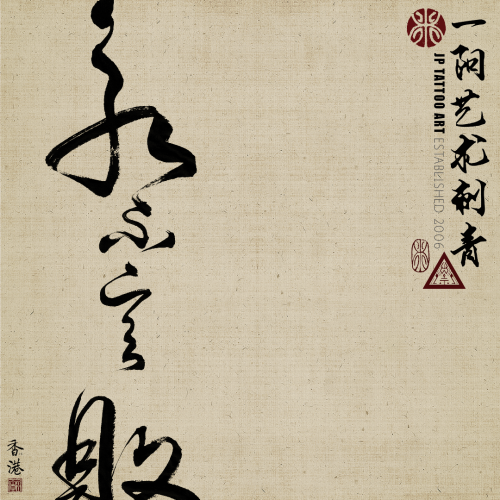 永不言败
一阳艺术刺青
JP TATTOO ART ESTABLISHED 2006
香港